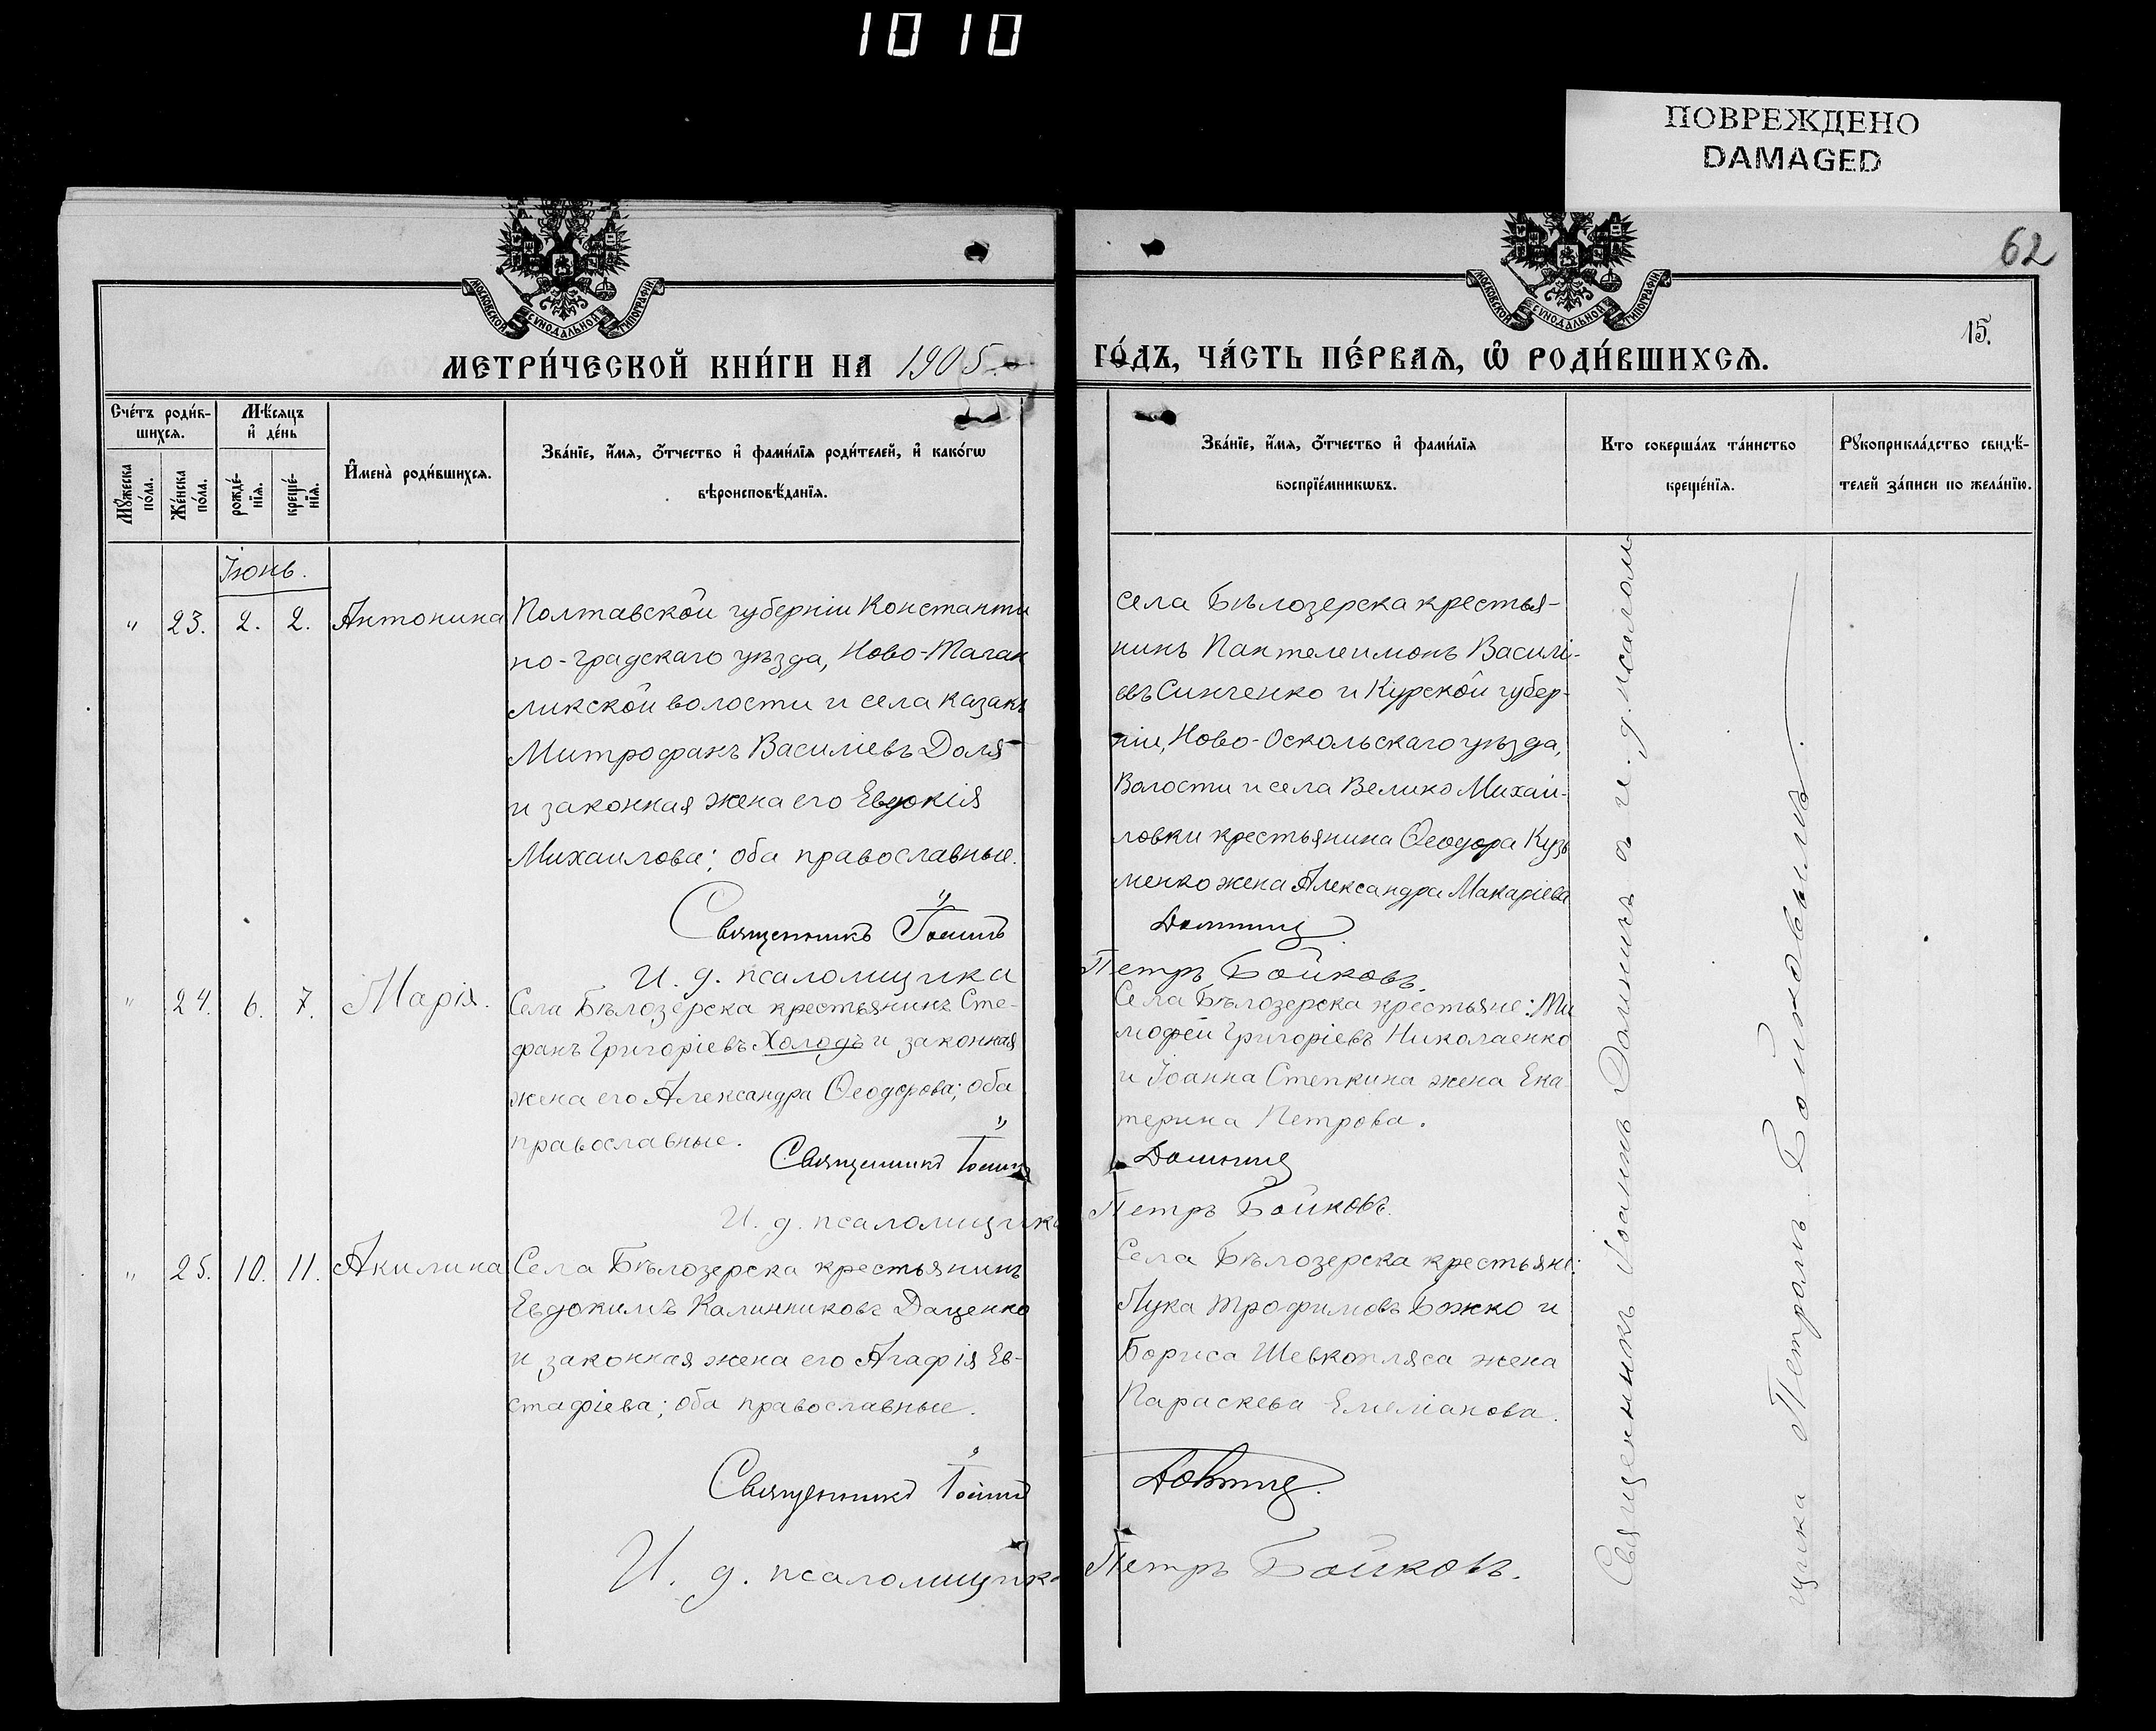 1010
ПОВРЕЖДЕНО
DAMAGED
62
МОСКОВСКОЙ СѴНОДАЛЬНОЙ ТИПОГРАФІИ
МОСКОВСКОЙ СѴНОДАЛЬНОЙ ТИПОГРАФІИ
15.
МЕТРИ́ЧЕСКОЙ КНИ́ГИ НА 1905
ГО́ДЪ, ЧА́СТЬ ПЕ́РВАѦ, Ѽ РОДИ́ВШИХСѦ.
Сче́тъ роди́в-
шихсѧ.
Мѣ́сяцъ
и҆ де́нь
Мꙋ́жеска
по́ла.
Же́нска
по́ла.
рожде́-
нїѧ.
креще́-
нїѧ.
И҆мена̀ роди́вшихсѧ.
Зва́нїе, и҆́мѧ, ѻ҆́тчество и҆ фами́лїѧ роди́телей, и҆ како́гѡ
вѣроисповѣ́данїѧ.
Зва́нїе, и҆́мѧ, ѻ҆́тчество и҆ фами́лїѧ
воспрїе́мникѡвъ.
Кто соверша́лъ та́инство
креще́нїѧ.
Рꙋкоприкла́дство свидѣ́-
телей за́писи по жела́нїю.
Іюнь.
" 23. 2. 2. Антонина
Полтавской губерніи Константи
но-градскаго уѣзда, Ново-Тагам
ликской волости и села казакъ
Митрофанъ Василіевъ Доля
и законная жена его Евдокія
Михаилова; оба православные.
Священникъ Іоаннъ
И. д. псаломщика
села Бѣлозерска крестья-
нинъ Пантелеимонъ Василі-
евъ Синченко и Курской губер-
ніи, Ново-Оскольскаго уѣзда,
Волости и села Велико Михаи-
ловки крестьянина Ѳеодора Кузь
менко жена Александра Макаріева
Долинъ
Петръ Бойковъ.
" 24. 6. 7. Марія.
Села Бѣлозерска крестьянинъ Сте-
фанъ Григоріевъ Холодъ и законная
жена его Александра Ѳеодорова; оба
православные.
Священникъ Іоаннъ
И. д. псаломщика
Села Бѣлозерска крестьяне: Ти
мофей Григоріевъ Николаенко
и Іоанна Степкина жена Ека-
терина Петрова.
Долинъ
Петръ Бойковъ.
" 25. 10. 11. Акилина
Села Бѣлозерска крестьянинъ
Евдокимъ Калинниковъ Даценко
и законная жена его Агафія Ев-
стафіева; оба православные.
Священникъ Іоаннъ
И. д. псаломщика
Села Бѣлозерска крестьяне:
Лука Трофимовъ Божко и
Бориса Шевкопляса жена
Параскева Емеліанова.
Долинъ.
Петръ Бойковъ.
Священникъ Іоаннъ Долинъ с и. д. псалом
щика Петромъ Бойковымъ.